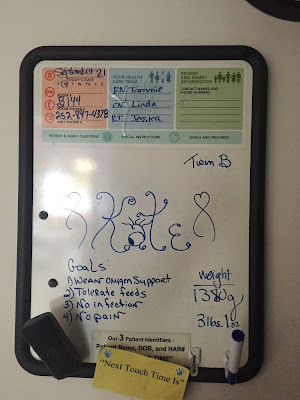 September 21
TODAY'S DATE
YOUR HEALTH
CARE TEAM
PATIENT
AND FAMILY
INFORMATION
S M T W T F S
RN: Tammie
CONTACT NAMES AND
PHONE NUMBERS
B 44
CN: Linda
252-847-4378
UNIT PHONE #
RT: Jessica
PATIENT & FAMILY QUESTIONS
SPECIAL INSTRUCTIONS
GOALS AND PROGRESS
Twin B
Kate
Goals:
1) Wean oxygen support
2) Tolerate feeds
3) No infection
4) No pain
weight
1380g
3 lbs. 1 oz
Our 3 Patient Identifiers:
Patient Name, DOB, and HAR#
TIME"
"Next Touch Time Is"